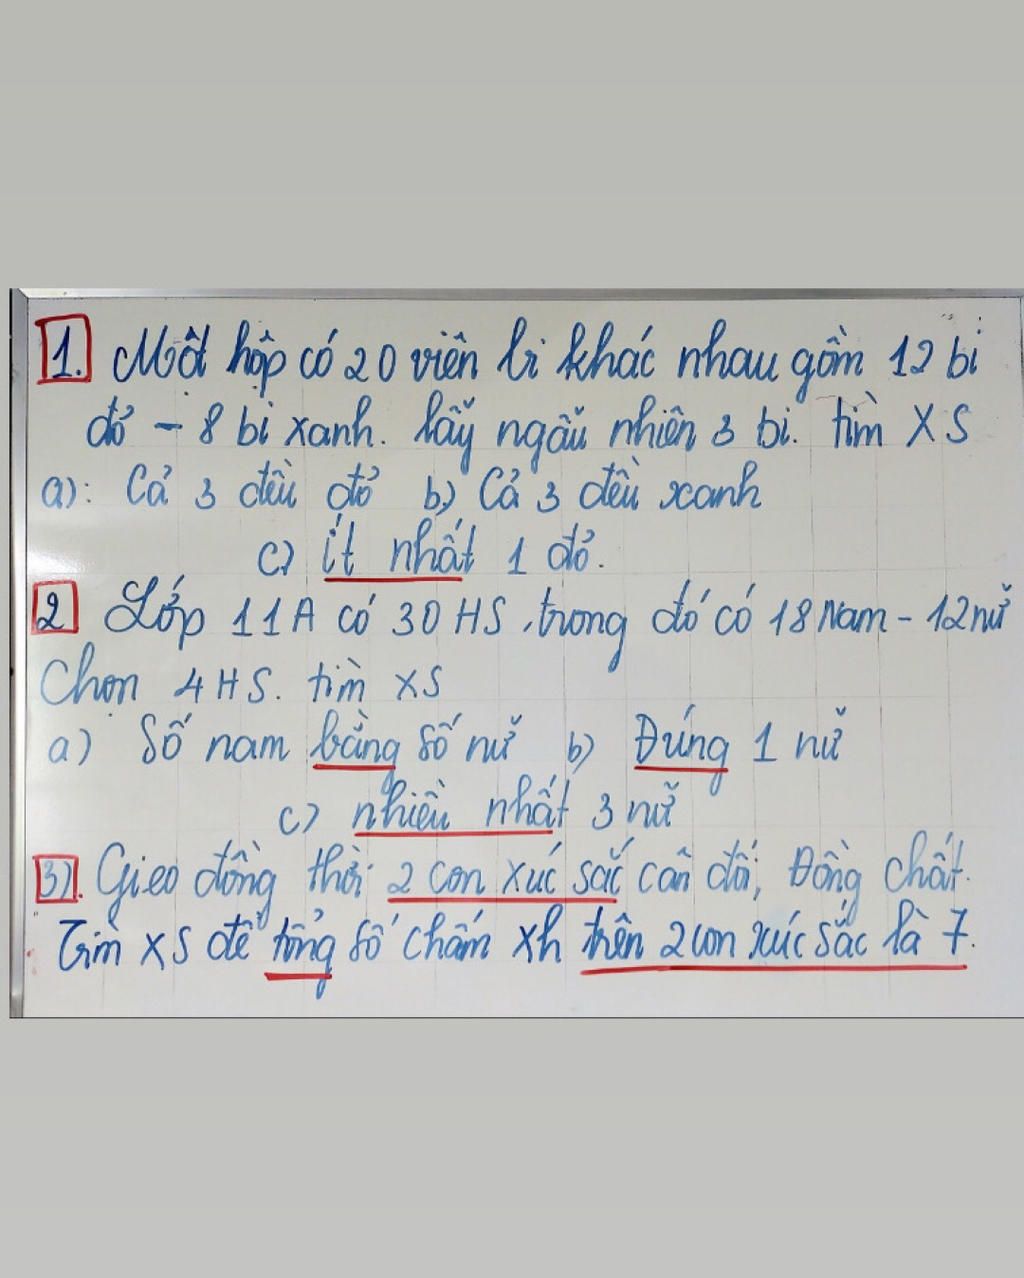 1. Một hộp có 20 viên bi khác nhau gồm 12 bi
đỏ - 8 bi xanh. lấy ngẫu nhiên 3 bi. tìm XS
a): Cả 3 đều đỏ b) Cả 3 đều xanh
c) ít nhất 1 đỏ.
2 Lớp 11A có 30 HS, trong đó có 18 Nam - 12 nữ
Chọn 4 HS. tìm XS
a) Số nam bằng số nữ b) Đúng 1 nữ
c) nhiều nhất 3 nữ
3). Gieo đồng thời 2 con xúc sắc cân đối, Đồng chất.
Tìm XS để tổng số chấm xh trên 2 con xúc sắc là 7.